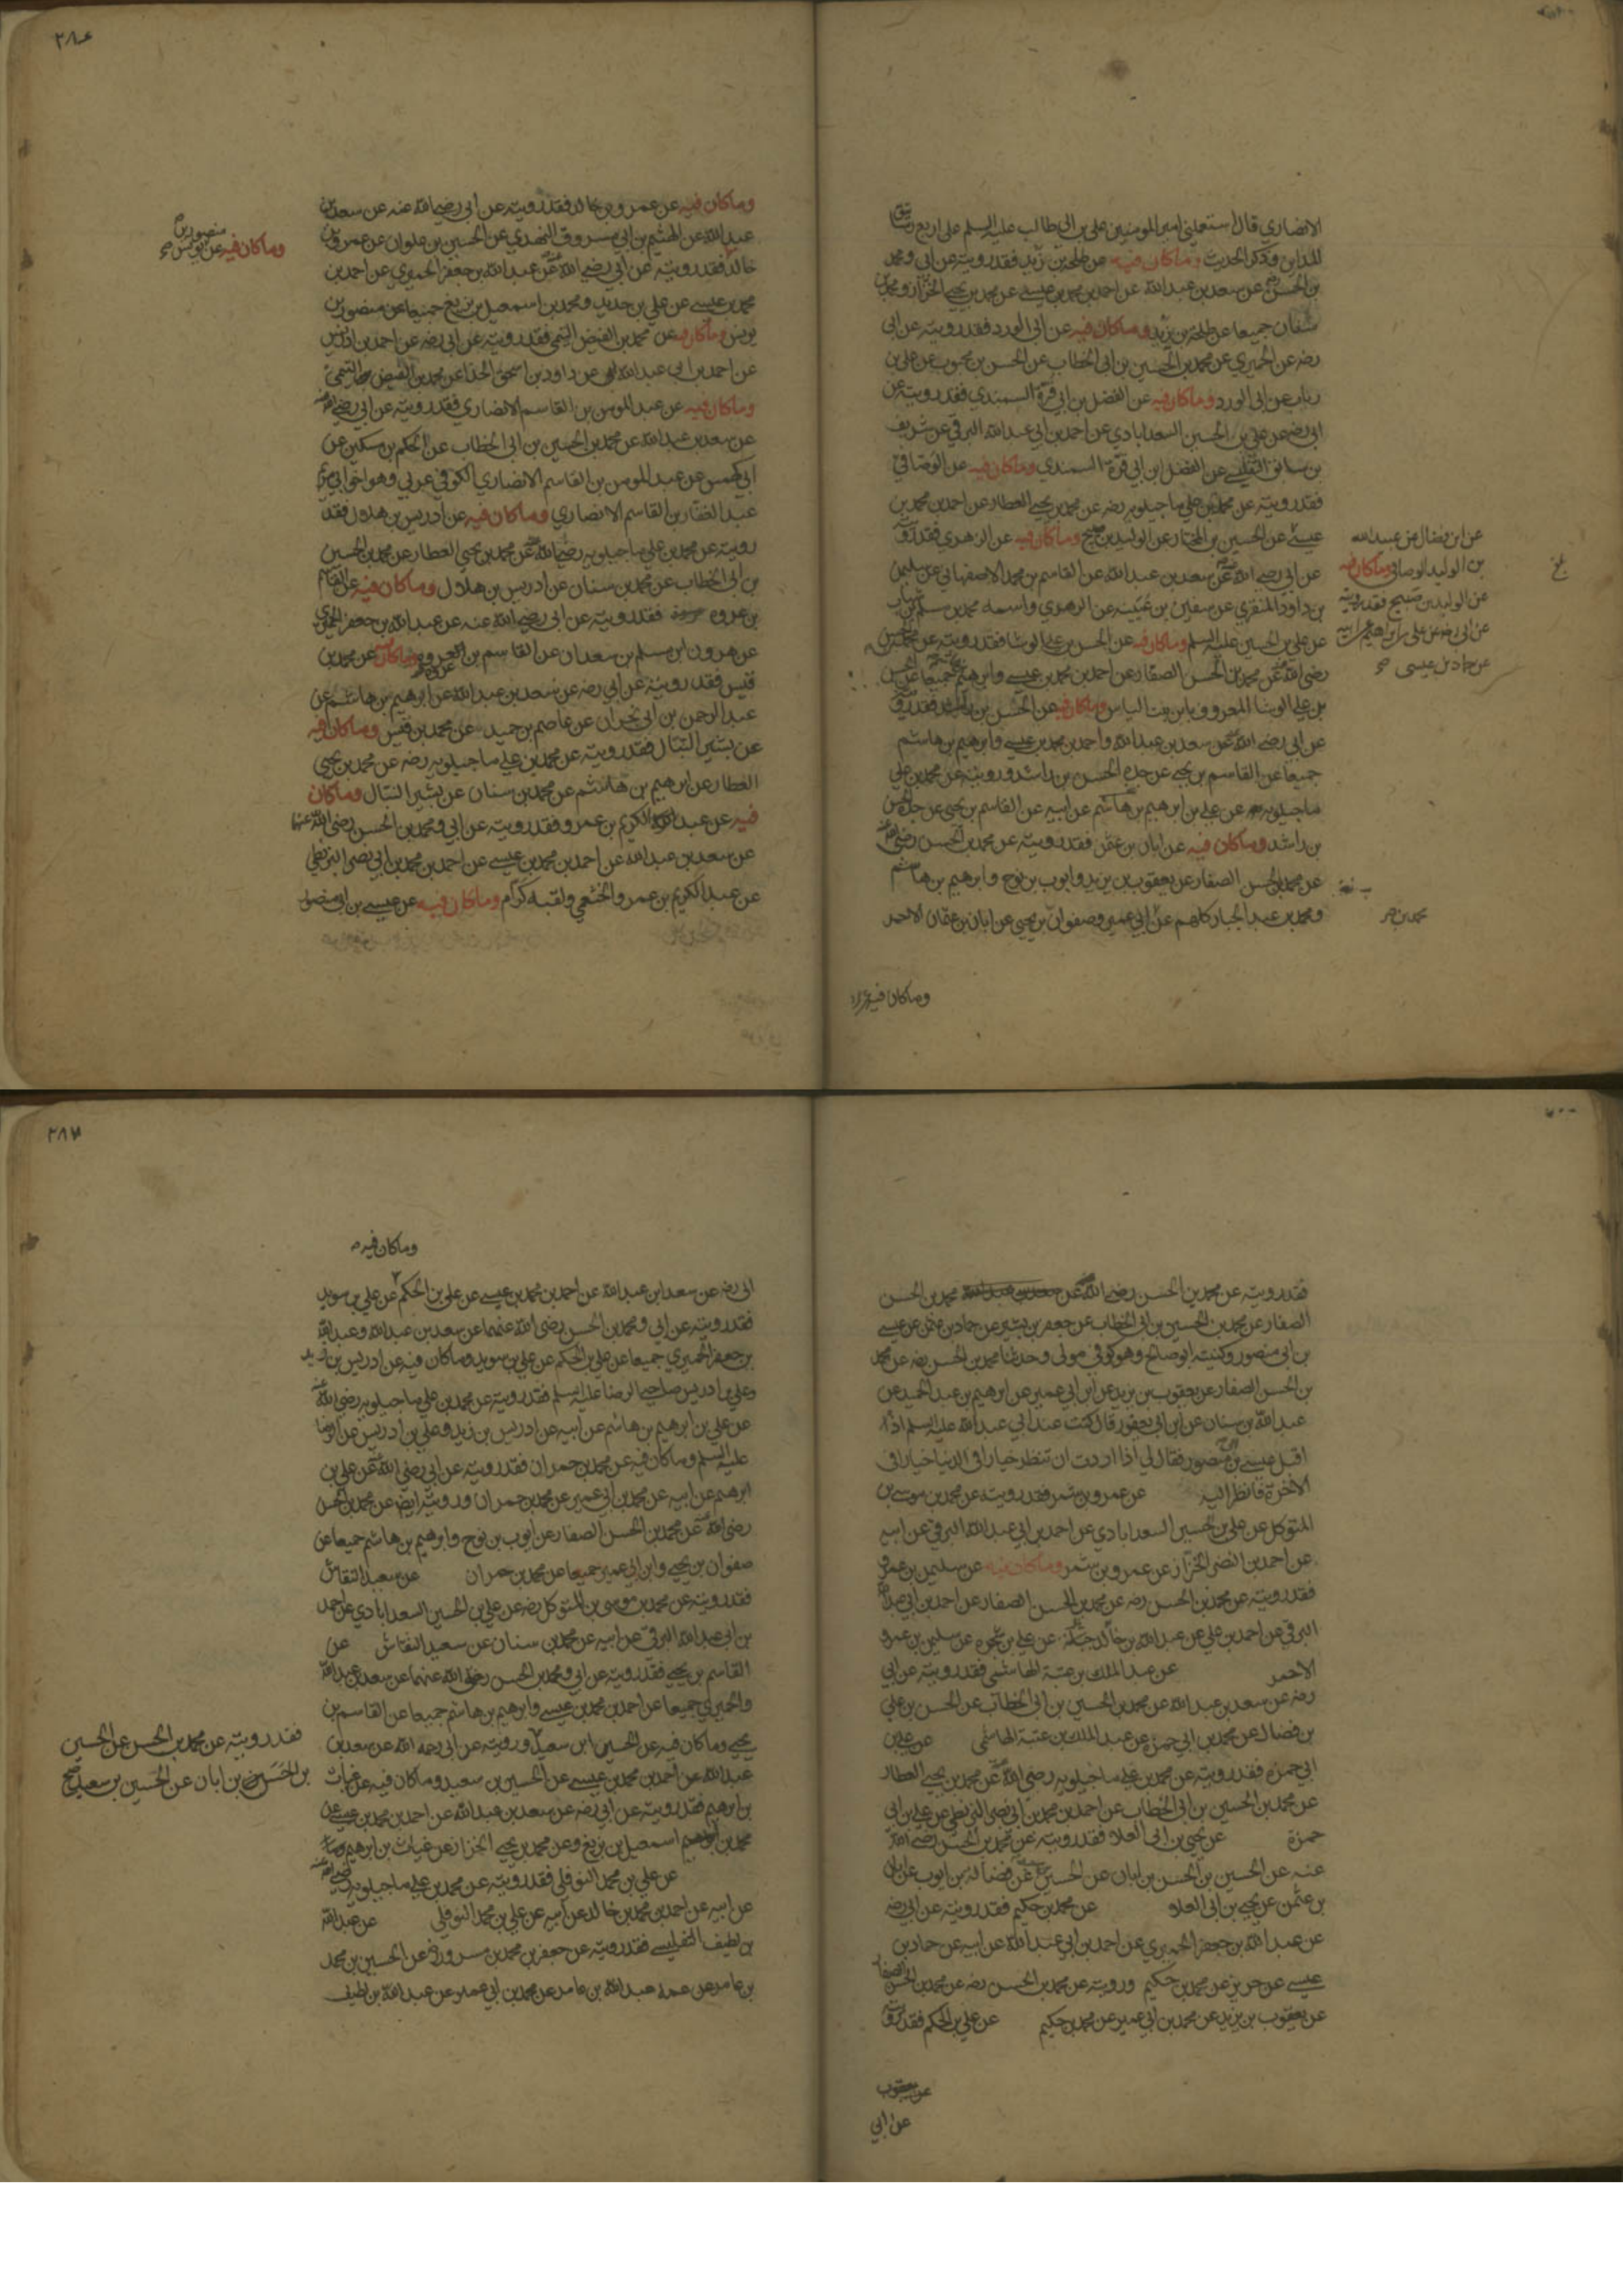 الانصاري قال استعملني امير المومنين علي بن ابي طالب عليه السلم على اربع رساتيق
المداين وذكر الحديث وماكان فيه عن طلحة بن زيد فقد رويته عن ابي ومحمد
بن الحسن رضي عن سعد بن عبد الله عن احمد بن محمد بن عيسى عن محمد بن يحيى الخزاز ومحمد بن
سنان جميعا عن طلحة بن زيد وماكان فيه عن ابي الورد فقد رويته عن ابي
رضه عن الحميري عن محمد بن الحسين بن ابي الخطاب عن الحسن بن محبوب عن علي بن
رياب عن ابي الورد وماكان فيه عن الفضل بن ابي قرة السمندي فقد رويته عن
ابي رضه عن علي بن الحسين السعدابادي عن احمد بن ابي عبد الله البرقي عن شريف
بن سابق التفليسي عن الفضل ابن ابي قرة السمندي وماكان فيه عن الوصافي
فقد رويته عن محمد بن علي ماجيلويه رضه عن محمد بن يحيى العطار عن احمد بن محمد بن
عيسى عن الحسين بن المختار عن الوليد بن صبيح وماكان فيه عن الزهري فقد رويته
عن ابن فضال عن عبيد الله
بن الوليد الوصافي وماكان فيه
عن الوليد بن صبيح فقد رويته
عن ابي رضه عن علي بن ابراهيم عن ابيه
عن حماد بن عيسى
عن ابي رضي الله عنه عن سعد بن عبد الله عن القاسم بن محمد الاصفهاني عن سليمن
بن داود المنقري عن سفين بن عيينه عن الزهري واسمه محمد بن مسلم بن شهاب
عن علي بن الحسين عليه السلم وماكان فيه عن الحسن بن علي الوشا فقد رويته عن محمد بن الحسن
رضي الله عنه عن محمد بن الحسن الصفار عن احمد بن محمد بن عيسى وابرهيم بن هاشم جميعا عن الحسن
بن علي الوشا المعروف بابن بنت الياس وماكان فيه عن الحسن بن راشد فقد رويته
عن ابي رضي الله عنه عن سعد بن عبد الله واحمد بن محمد بن عيسى وابرهيم بن هاشم
جميعا عن القاسم بن يحيى عن جده الحسن بن راشد ورويته عن محمد بن علي
ماجيلويه رضه عن علي بن ابرهيم بن هاشم عن ابيه عن القاسم بن يحيى عن جده الحسن
بن راشد وماكان فيه عن ابان بن عثمن فقد رويته عن محمد بن الحسن رضي الله عنه
عن محمد بن الحسن الصفار عن يعقوب بن يزيد وايوب بن نوح وابرهيم بن هاشم
ومحمد بن عبد الجبار كلهم عن ابي عمير وصفوان بن يحيى عن ابان بن عثمان الاحمر
محمد بن
وماكان فيه عن
٢٨٦
وماكان فيه عن عمرو بن خالد فقد رويته عن ابي رضي الله عنه عن سعد بن
عبد الله عن الهيثم بن ابي مسروق النهدي عن الحسين بن علوان عن عمرو بن
خالد فقد رويته عن ابي رضي الله عنه عن عبد الله بن جعفر الحميري عن احمد بن
وماكان فيه عن منصور بن يونس
محمد بن عيسى عن علي بن حديد ومحمد بن اسمعيل بن بزيع جميعا عن منصور بن
يونس وماكان فيه عن محمد بن الفيض التيمي فقد رويته عن ابي رضه عن احمد بن ادريس
عن احمد بن ابي عبد الله عن داود بن اسحق الحذا عن محمد بن الفيض التيمي
وماكان فيه عن عبد المومن بن القاسم الانصاري فقد رويته عن ابي رضي الله عنه
عن سعد بن عبد الله عن محمد بن الحسين بن ابي الخطاب عن الحكم بن مسكين عن
ابي كهمس عن عبد المومن بن القاسم الانصاري الكوفي عربي وهو اخو ابي مريم
عبد الغفار بن القاسم الانصاري وماكان فيه عن ادريس بن هلال فقد
رويته عن محمد بن علي ماجيلويه رضي الله عنه عن محمد بن يحيى العطار عن محمد بن الحسين
بن ابي الخطاب عن محمد بن سنان عن ادريس بن هلال وماكان فيه عن القاسم
بن عروه فقد رويته عن ابي رضي الله عنه عن عبد الله بن جعفر الحميري
عن هرون ابن مسلم بن سعدان عن القاسم بن عروه وماكان فيه عن محمد بن
قيس فقد رويته عن ابي رضه عن سعد بن عبد الله عن ابرهيم بن هاشم عن
عبد الرحمن بن ابي نجران عن عاصم بن حميد عن محمد بن قيس وماكان فيه
عن بشير النبال فقد رويته عن محمد بن علي ماجيلويه رضه عن محمد بن يحيى
العطار عن ابرهيم بن هاشم عن محمد بن سنان عن بشير النبال وماكان
فيه عن عبد الكريم بن عمرو فقد رويته عن ابي ومحمد بن الحسن رضي الله عنهما
عن سعد بن عبد الله عن احمد بن محمد بن عيسى عن احمد بن محمد بن ابي نصر البزنطي
عن عبد الكريم بن عمرو الخثعمي ولقبه كرام وماكان فيه عن عيسى بن ابي منصور
فقد رويته عن محمد بن الحسن رضي الله عنه عن محمد بن الحسن
الصفار عن محمد بن الحسين بن ابي الخطاب عن جعفر بن بشير عن حماد بن عثمن عن عيسى
بن ابي منصور وكنيته ابو صالح وهو كوفي مولى وحدثنا محمد بن الحسن رضه عن محمد
بن الحسن الصفار عن يعقوب بن يزيد عن ابن ابي عمير عن ابرهيم بن عبد الحميد عن
عبد الله بن سنان عن ابن ابي يعفور قال كنت عند ابي عبد الله عليه السلم اذ
اقبل عيسى بن ابي منصور فقال لي اذا اردت ان تنظر خيارا في الدنيا خيارا في
الاخرة فانظر اليه عن عمرو بن شمر فقد رويته عن محمد بن موسى بن
المتوكل عن علي بن الحسين السعدابادي عن احمد بن ابي عبد الله البرقي عن ابيه
عن احمد بن النضر الخزاز عن عمرو بن شمر وماكان فيه عن سليمن بن عمرو
فقد رويته عن محمد بن الحسن رضه عن محمد بن الحسن الصفار عن احمد بن ابي عبد الله
البرقي عن احمد بن علي عن عبد الله بن خالد جبلة عن علي بن شجره عن سليمن بن عمرو
الاحمر عن عبد الملك بن عتبة الهاشمي فقد رويته عن ابي
رضه عن سعد بن عبد الله عن محمد بن الحسين بن ابي الخطاب عن الحسن بن علي
بن فضال عن محمد بن ابي حمزه عن عبد الملك بن عتبة الهاشمي عن علي بن
ابي حمزه فقد رويته عن محمد بن علي ماجيلويه رضي الله عنه عن محمد بن يحيى العطار
عن محمد بن الحسين بن ابي الخطاب عن احمد بن محمد بن ابي نصر البزنطي عن علي بن ابي
حمزة عن يحيى بن ابي العلا فقد رويته عن محمد بن الحسن رضي الله
عنه عن الحسين بن الحسن بن ابان عن الحسين بن سعيد عن فضالة بن ايوب عن ابان
بن عثمن عن يحيى بن ابي العلا عن محمد بن حكيم فقد رويته عن ابي رضه
عن عبد الله بن جعفر الحميري عن احمد بن ابي عبد الله عن ابيه عن حماد بن
عيسى عن حريز عن محمد بن حكيم ورويته عن محمد بن الحسن رضه عن محمد بن الحسن الصفار
عن يعقوب بن يزيد عن محمد بن ابي عمير عن محمد بن حكيم عن علي بن الحكم فقد رويته
عن يعقوب
عن ابي
٢٨٧
وماكان فيه
ابي رضه عن سعد ابن عبد الله عن احمد بن محمد بن عيسى عن علي بن الحكم عن علي بن سويد
فقد رويته عن ابي ومحمد بن الحسن رضي الله عنهما عن سعد بن عبد الله وعبد الله
بن جعفر الحميري جميعا عن علي بن الحكم عن علي بن سويد وماكان فيه عن ادريس بن زيد
وعلي بن ادريس صاحبي الرضا عليه السلم فقد رويته عن محمد بن علي ماجيلويه رضي الله عنه
عن علي بن ابرهيم بن هاشم عن ابيه عن ادريس بن زيد وعلي بن ادريس عن الرضا
عليه السلم وماكان فيه عن محمد بن حمران فقد رويته عن ابي رضي الله عنه عن علي بن
ابرهيم عن ابيه عن محمد بن ابي عمير عن محمد بن حمران ورويته ايضه عن محمد بن الحسن
رضي الله عنه عن محمد بن الحسن الصفار عن ايوب بن نوح وابرهيم بن هاشم جميعا عن
صفوان بن يحيى وابن ابي عمير جميعا عن محمد بن حمران عن سعيد النقاش
فقد رويته عن محمد بن موسى بن المتوكل رضه عن علي بن الحسين السعدابادي عن احمد
بن ابي عبد الله البرقي عن ابيه عن محمد بن سنان عن سعيد النقاش عن
القاسم بن يحيى فقد رويته عن ابي ومحمد بن الحسن رضي الله عنهما عن سعد بن عبد الله
والحميري جميعا عن احمد بن محمد بن عيسى وابرهيم بن هاشم جميعا عن القاسم بن
يحيى وماكان فيه عن الحسين ابن سعيد ورويته عن ابي رحمه الله عن سعد بن
فقد رويته عن محمد بن الحسن عن الحسين
بن الحسن بن ابان عن الحسين بن سعيد صح
عبد الله عن احمد بن محمد بن عيسى عن الحسين بن سعيد وماكان فيه عن غياث
بن ابرهيم فقد رويته عن ابي رضه عن سعد بن عبد الله عن احمد بن محمد بن عيسى عن
محمد بن اسمعيل بن بزيع وعن محمد بن يحيى الخزاز عن غياث بن ابرهيم وماكان
عن علي بن محمد النوفلي فقد رويته عن محمد بن علي ماجيلويه رضي الله عنه
عن ابيه عن احمد بن محمد بن خالد عن ابيه عن علي بن محمد النوفلي عن عبد الله
بن لطيف التفليسي فقد رويته عن جعفر بن محمد بن مسرور رضه عن الحسين بن محمد
بن عامر عن عمه عبد الله بن عامر عن محمد بن ابي عمير عن عبد الله بن لطيف